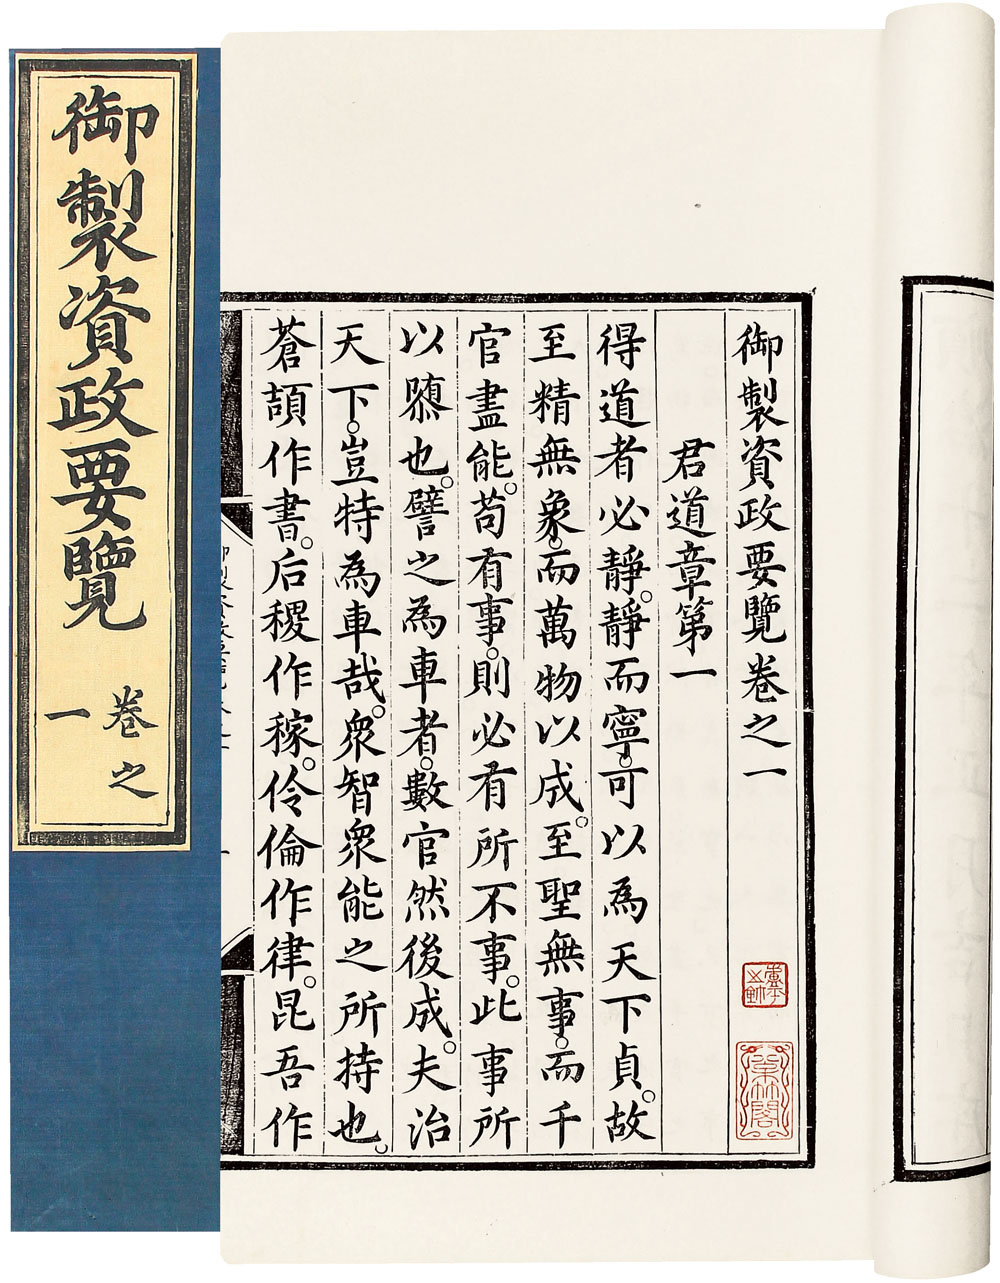 御製資政要覽
卷之
一
御製資政要覽卷之一
君道章第一
得道者必靜。靜而寧。可以為天下貞。故
至精無象。而萬物以成。至聖無事。而千
官盡能。苟有事。則必有所不事。此事所
以隳也。譬之為車者。數官然後成。夫治
天下。豈特為車哉。衆智衆能之所持也。
蒼頡作書。后稷作稼。伶倫作律。昆吾作